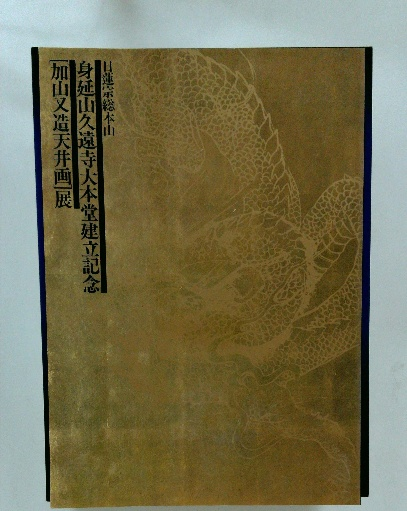 日蓮宗総本山
身延山久遠寺大本堂建立記念
「加山又造天井画」展